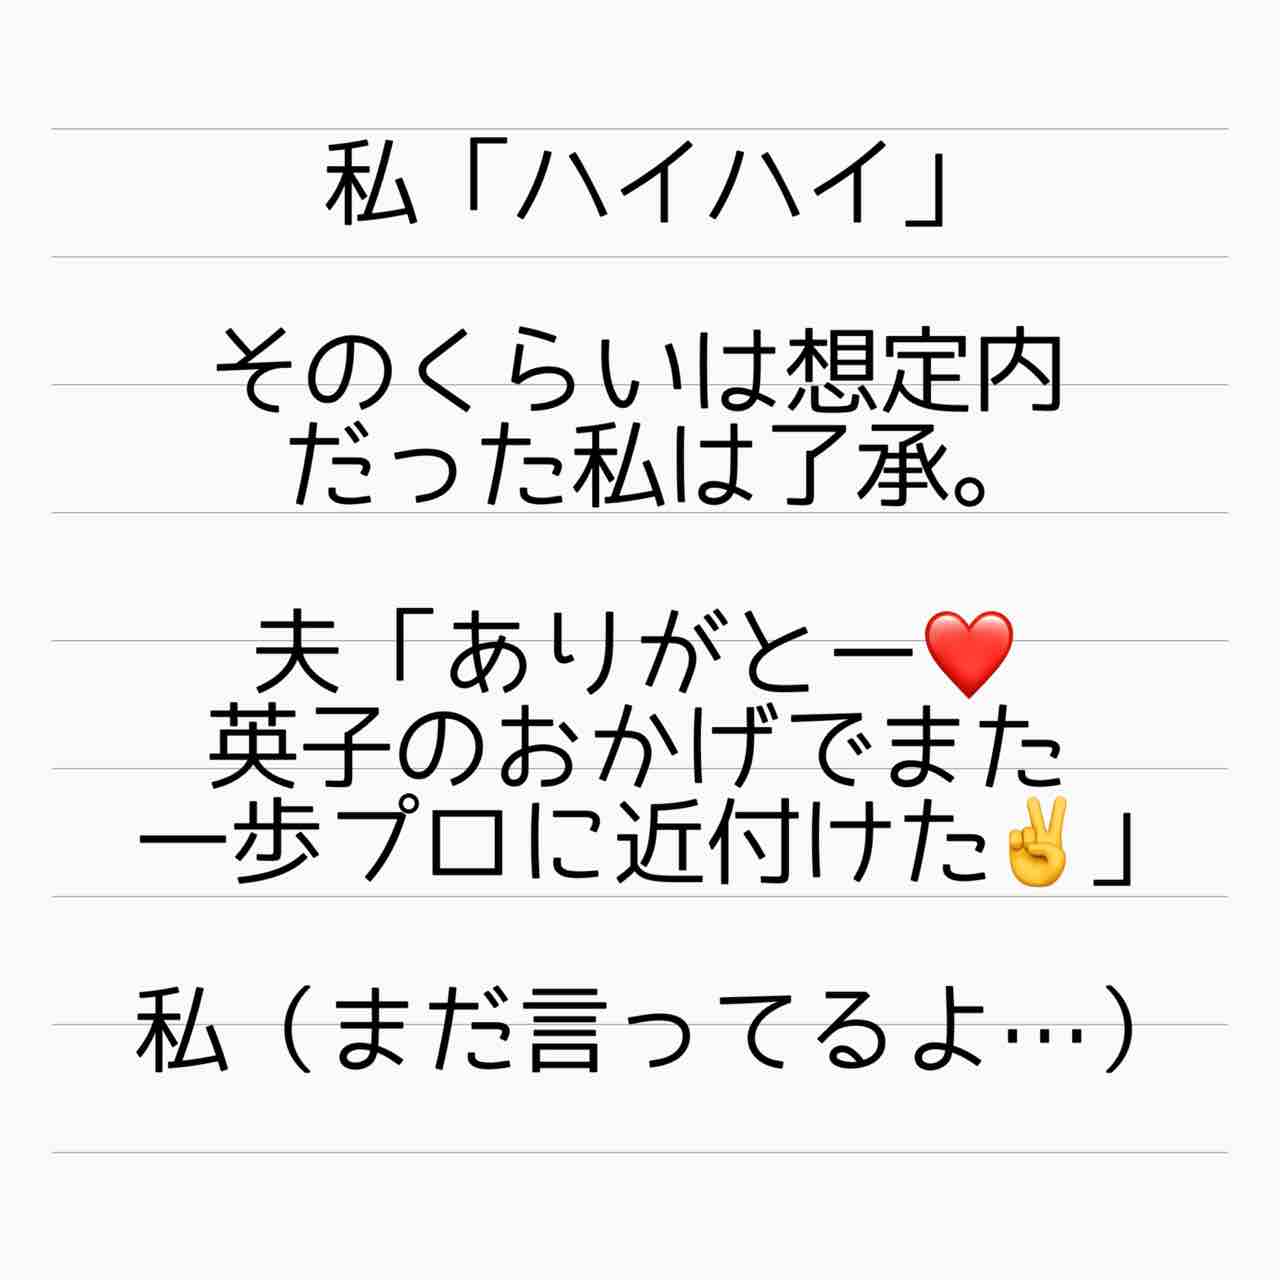 私「ハイハイ」
そのくらいは想定内
だった私は了承。
夫「ありがとー❤️
英子のおかげでまた
一歩プロに近付けた✌️」
私（まだ言ってるよ…）